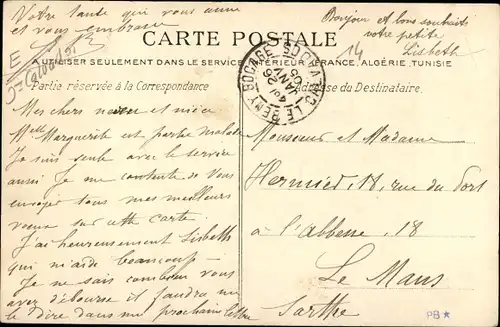 Votre tante qui vous aime
et vous embrasse
Bonjour et bons souhaits
votre petite
Lisbeth
14
CARTE POSTALE
A UTILISER SEULEMENT DANS LE SERVICE INTÉRIEUR (FRANCE, ALGÉRIE, TUNISIE
Partie réservée à la Correspondance
Adresse du Destinataire.
LE BENY BOCAGE
CALVADOS
JANV
05
Mes chers neveu et nièce
Melle Marguerite est partie
Je suis seule avec le service
aussi Je me contente de vous
envoyer tous mes meilleurs
voeux sur cette carte.
J'ai heureusement Lisbeth
qui m'aide beaucoup -
Je ne sais combien vous
avez déboursé il faudra me
le dire dans une prochaine lettre
Monsieur et Madame
18, rue du Port
à l'abbesse. 18
Le Mans
Sarthe
PB*